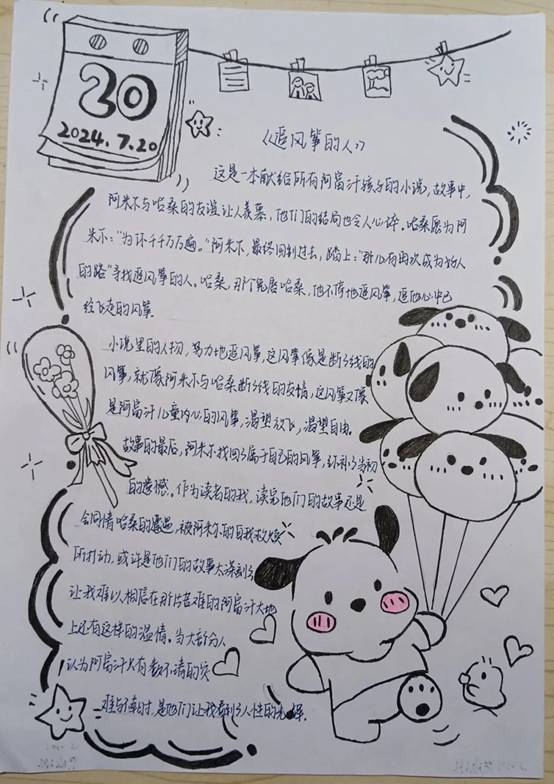 20
2024.7.20
《追风筝的人》
这是一本献给所有阿富汗孩子的小说,故事中,
阿米尔与哈桑的友谊让人羡慕,他们的结局也令人心碎。哈桑愿为阿
米尔:"为你千千万万遍。"阿米尔,最终回到过去,踏上:"那儿有再次成为好人
的路"寻找追风筝的人。哈桑,那个兔唇哈桑,他不停地追风筝,追他心中已
经飞走的风筝。
小说里的人物,努力地追风筝,这风筝像是断了线的
风筝,就像阿米尔与哈桑断了线的友情,这风筝又像
是阿富汗儿童内心的风筝,渴望放飞,渴望自由。
故事的最后,阿米尔找回了属于自己的风筝,弥补了当初
的遗憾。作为读者的我,读完他们的故事还是
会同情哈桑的遭遇,被阿米尔的自我救赎
所打动,或许是他们的故事太深刻了
让我难以相信在那片苦难的阿富汗大地
上还有这样的温情。当大部分人
认为阿富汗只有数不清的灾
难与痛时,是他们让我看到了人性的光辉。